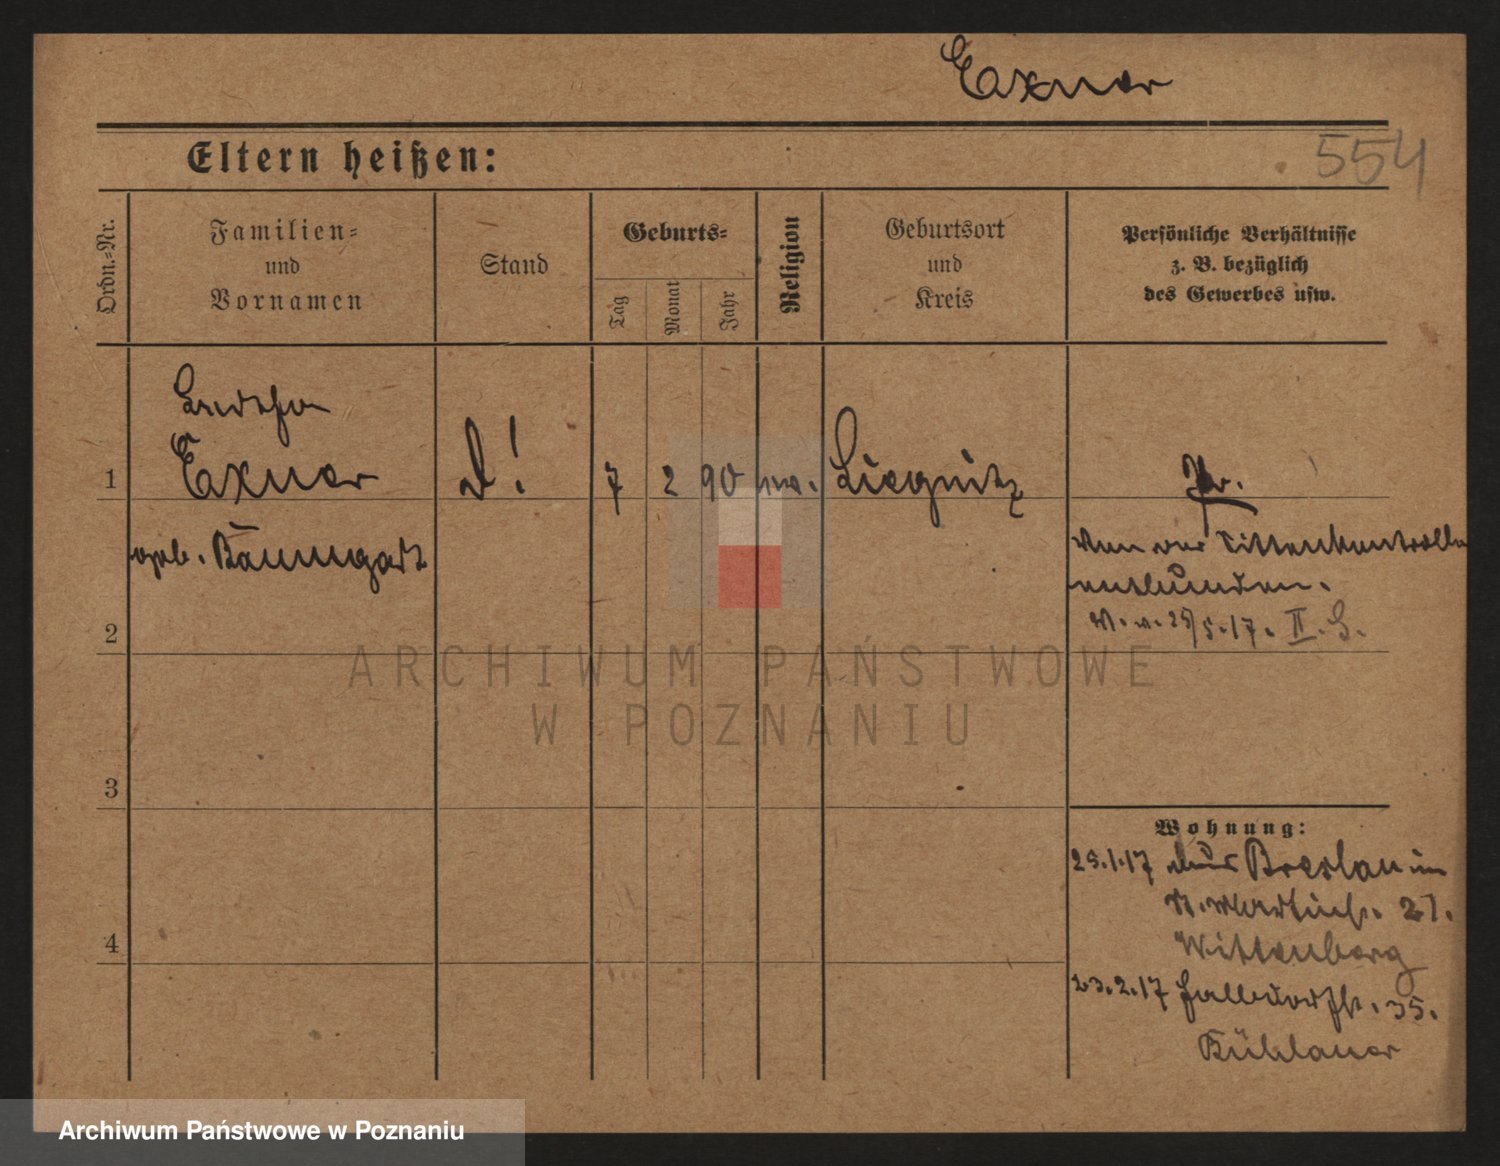 Exner
Eltern heißen:
554
Ordn.-Nr.
Familien-
und
Vornamen
Stand
Geburts-
Tag
Monat
Jahr
Religion
Geburtsort
und
Kreis
Persönliche Verhältnisse
z. B. bezüglich
des Gewerbes usw.
Exner
7 2 90
Liegnitz
1
geb. Baumgart
von der Sittenkontrolle
entbunden.
25/5.17. II.
2
3
4
Wohnung:
25.1.17 aus Breslau in
St. Martinstr. 27.
Wittenberg
23.2.17 Halldorfstr. 35.
ARCHIWUM PAŃSTWOWE
W POZNANIU
Archiwum Państwowe w Poznaniu